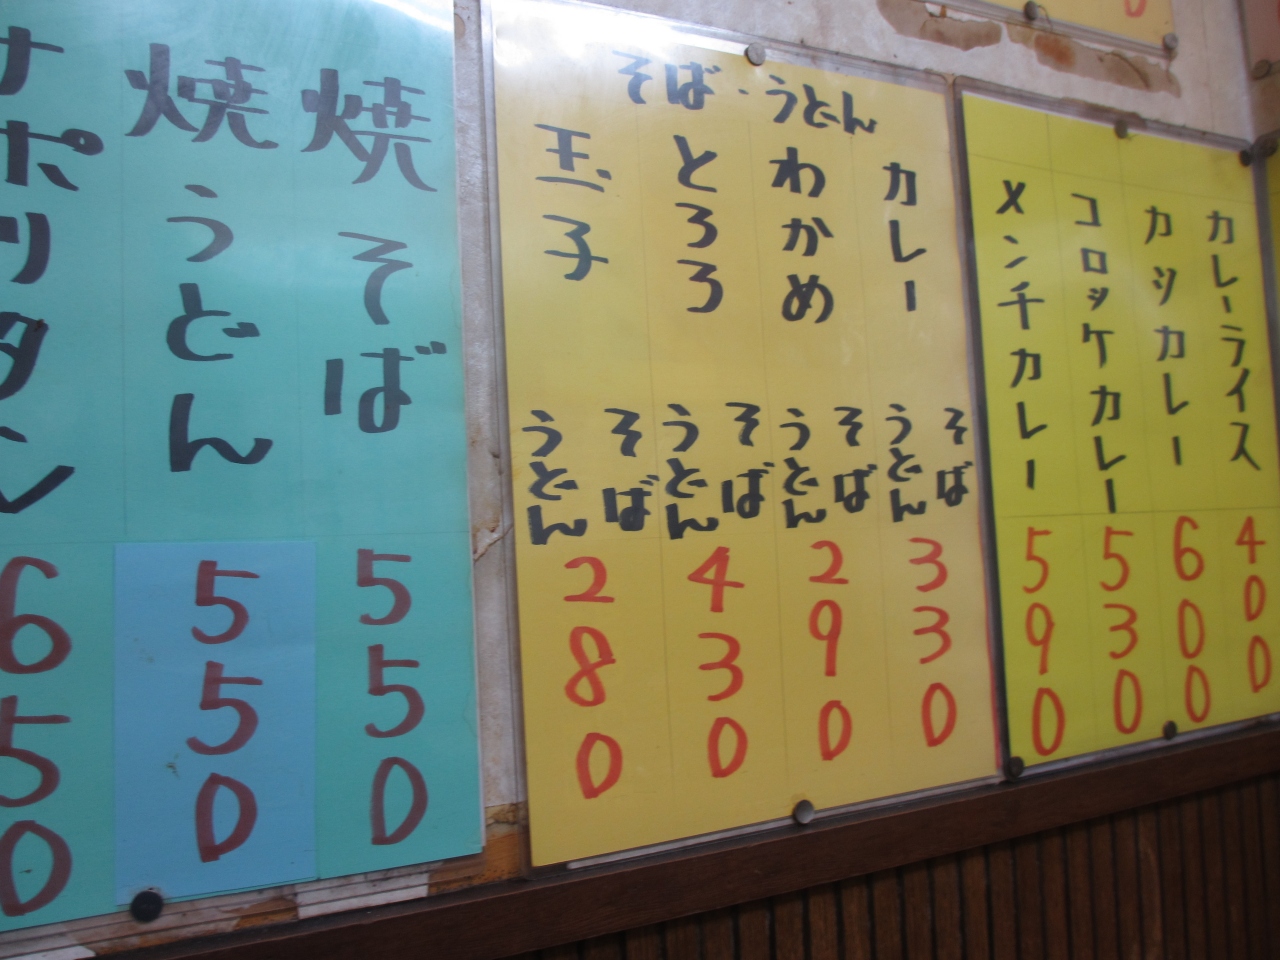 カレーライス 400
カツカレー 600
コロッケカレー 530
メンチカレー 590
そば・うどん
カレー そば うどん 330
わかめ そば うどん 290
とろろ そば うどん 430
玉子 そば うどん 280
焼そば 550
焼うどん 550
ナポリタン 650